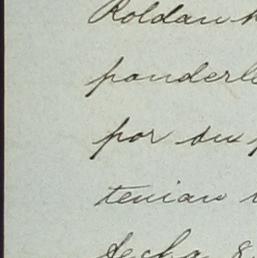 Roldan
ponderle
por su
tenian
fecha 8